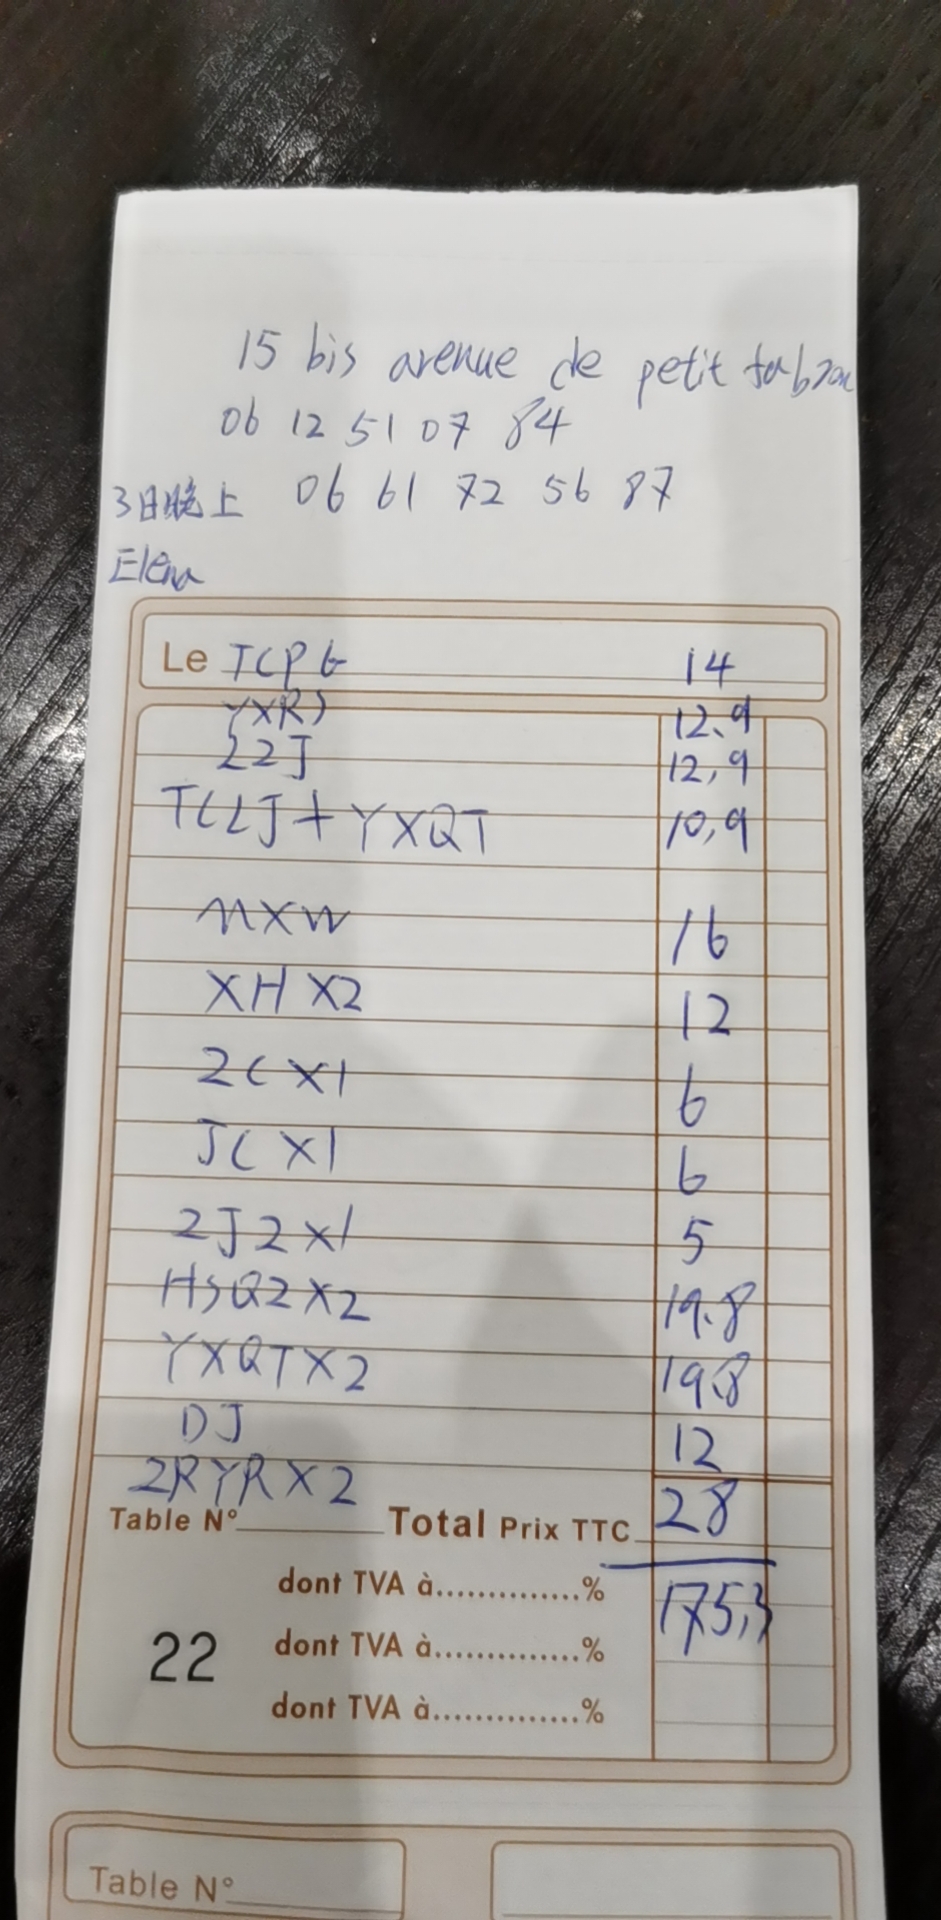 15 bis avenue de petit
06 12 51 07 84
3日晚上 06 61 72 56 87
Elena
Le TCPG 14
YXRS 12.9
22J 12,9
TCLJ + YXQT 10,9
MXW 16
XH X2 12
2C X1 6
JC X1 6
2J2 X1 5
HSQ2 X2 19.8
YXQT X2 19.8
DJ 12
2RYR X2 28
Table N° Total Prix TTC
dont TVA à..............% 175,3
22 dont TVA à..............%
dont TVA à..............%
Table N°